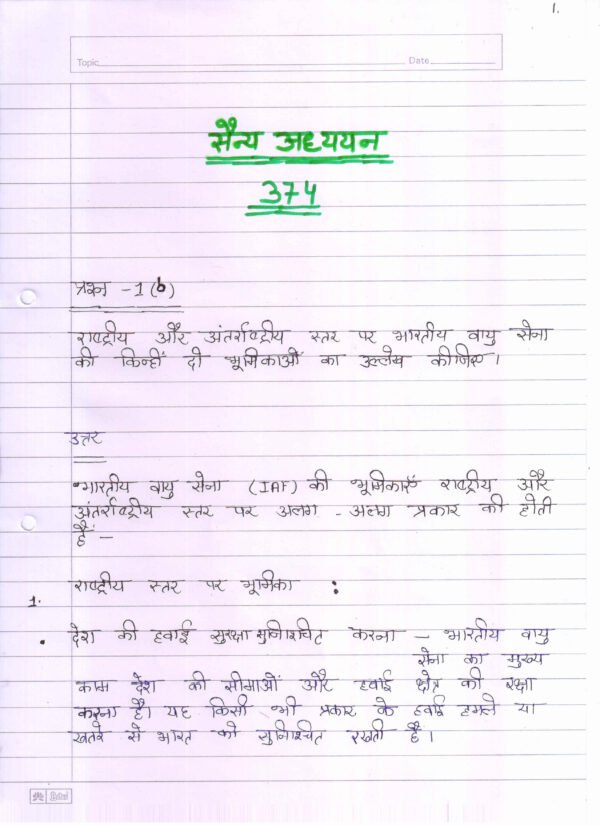 1.
Topic Date
सैन्य अध्ययन
374
प्रश्न -1(b)
राष्ट्रीय और अंतर्राष्ट्रीय स्तर पर भारतीय वायु सेना
की किन्हीं दो भूमिकाओं का उल्लेख कीजिए।
उत्तर
भारतीय वायु सेना (IAF) की भूमिकाएँ राष्ट्रीय और
अंतर्राष्ट्रीय स्तर पर अलग - अलग प्रकार की होती
हैं -
1. राष्ट्रीय स्तर पर भूमिका :
• देश की हवाई सुरक्षा सुनिश्चित करना - भारतीय वायु
सेना का मुख्य
काम देश की सीमाओं और हवाई क्षेत्र की रक्षा
करना है। यह किसी भी प्रकार के हवाई हमले या
खतरे से भारत को सुनिश्चित रखती है।